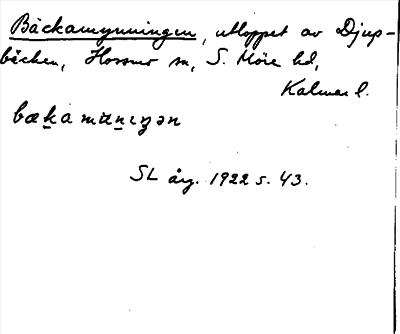 Bäckamynningen, utloppet av Djup-
bäcken, Hossmo sn, S. Möre hd,
Kalmar l.
SL årg. 1922 s. 43.